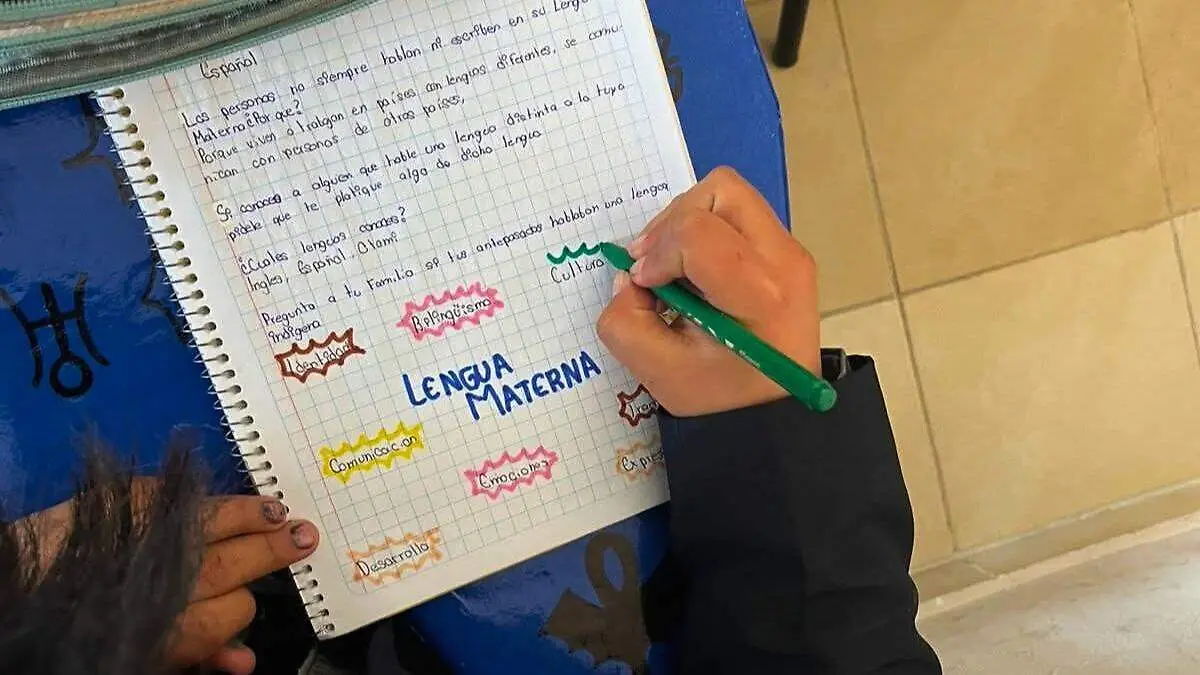 Español
Las personas no siempre hablan ni escriben en su Lengu
Materna ¿Por que?
Porque viven o trabajan en países con lenguas diferentes, se comu-
nican con personas de otros países,
Si conoces a alguien que hable una lengua distinta a la tuya
pidele que te platique algo de dicha lengua
¿Cuales lenguas conoces?
Ingles, Español, Otomi
Pregunta a tu Familia si tus antepasados hablaban una lengua
indigena
Cultura
Bilingüismo
Identidad
LENGUA
MATERNA
Comunicacion
Emociones
Expres
Desarrollo